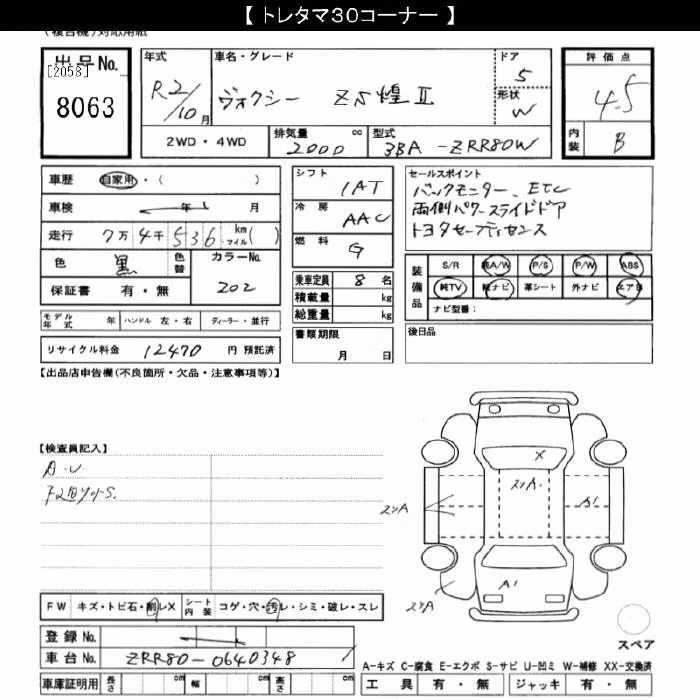 【 トレタマ30コーナー 】
(複合機)対応用紙
出品No.
[2058]
8063
年式
R2/10月
車名・グレード
ヴォクシー ZS 煌 II
ドア
5
形状
W
評価点
4.5
内装
B
2WD・4WD
排気量 2000 cc
型式 3BA-ZRR80W
車歴 自家用・( )
車検 年 月
走行 7万4千536 kmマイル( )
色 黒
色替
カラーNo. 202
保証書 有・無
モデル年式 年
ハンドル 左・右
ディーラー・並行
リサイクル料金 12470 円 預託済
シフト
IAT
冷房
AAC
燃料
G
乗車定員 8 名
積載量 kg
総重量 kg
書類期限
月 日
セールスポイント
バックモニター、ETC
両側パワースライドドア
トヨタセーフティセンス
装備品
S/R 純A/W P/S P/W ABS
純TV 純ナビ 革シート 外ナビ エアB
ナビ型番:
後日品
【出品店申告欄(不良箇所・欠品・注意事項等)】
【検査員記入】
A・U
X
A1
A1
FW キズ・トビ石・削レX
シート内装 コゲ・穴・汚レ・シミ・破レ・スレ
登録No.
車台No. ZRR80-0640348
車庫証明用 長さ cm 幅 cm 高さ cm
スペア
A-キズ C-腐食 E-エクボ S-サビ U-凹ミ W-補修 XX-交換済
工具 有・無 ジャッキ 有・無